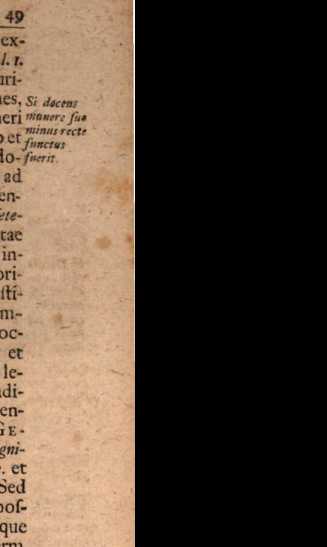 49
ex-
l. 1.
uri-
Si docens
munere suo
minus recte
functus
fuerit.
et
do-
ad
en-
ete-
tae
in-
ori-
ſti-
m-
oc-
et
le-
adi-
en-
GE-
gni-
et
Sed
poſ-
que